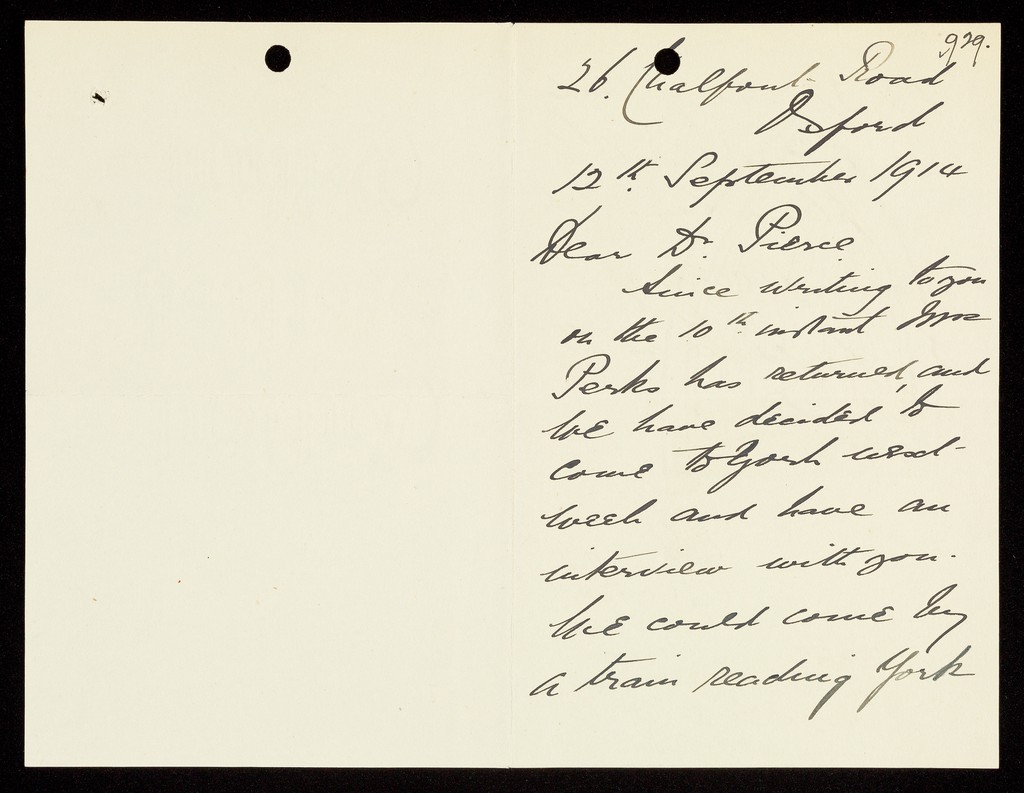 929.
26. Chalfont Road
Oxford
12th. September 1914
Dear Dr. Pierce
Since writing to you
on the 10th. instant Mrs
Perks has returned, and
we have decided to
come to York next
week and have an
interview with you.
We could come by
a train reaching York